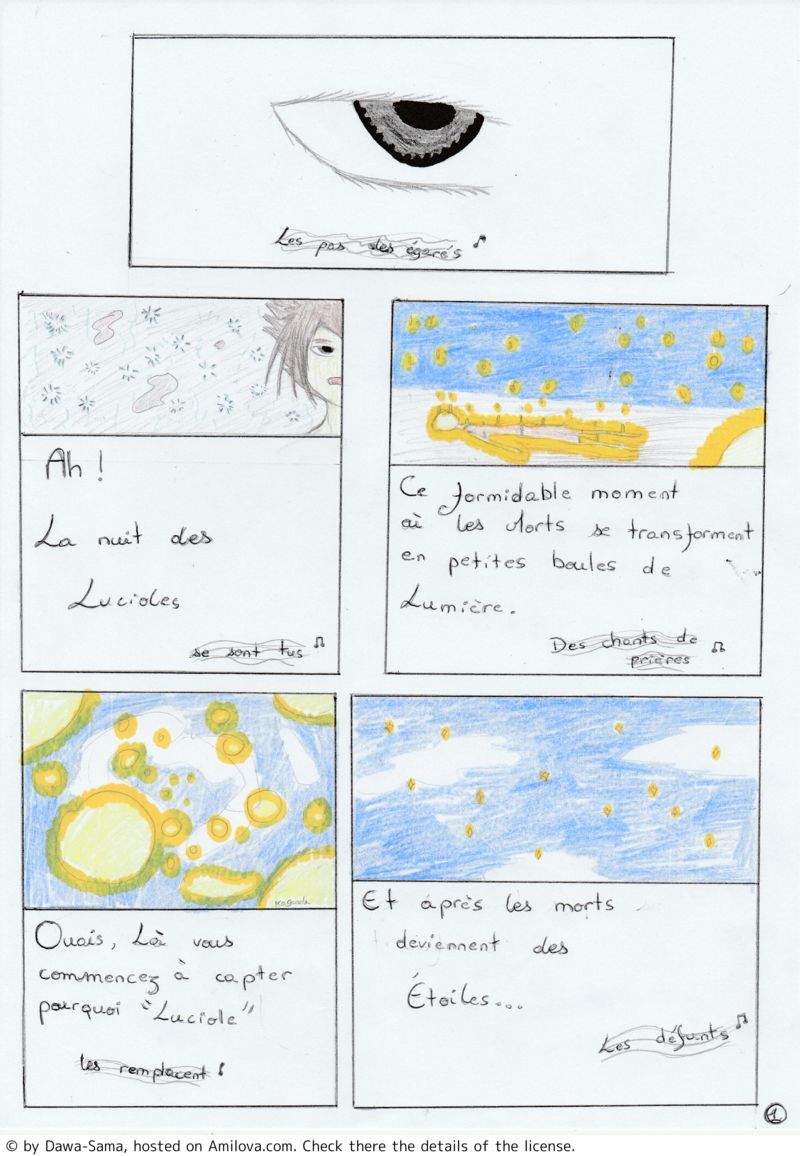 Les pas des égarés
Ah !
La nuit des
Lucioles
se sont tus
Ce formidable moment
où les Morts se transforment
en petites boules de
Lumière.
Des chants de
prières
Kaganda
Ouais, Là vous
commencez à capter
pourquoi "Luciole"
les remplacent !
Et àprès les morts
deviennent des
Étoiles...
Les défunts
1
© by Dawa-Sama, hosted on Amilova.com. Check there the details of the license.